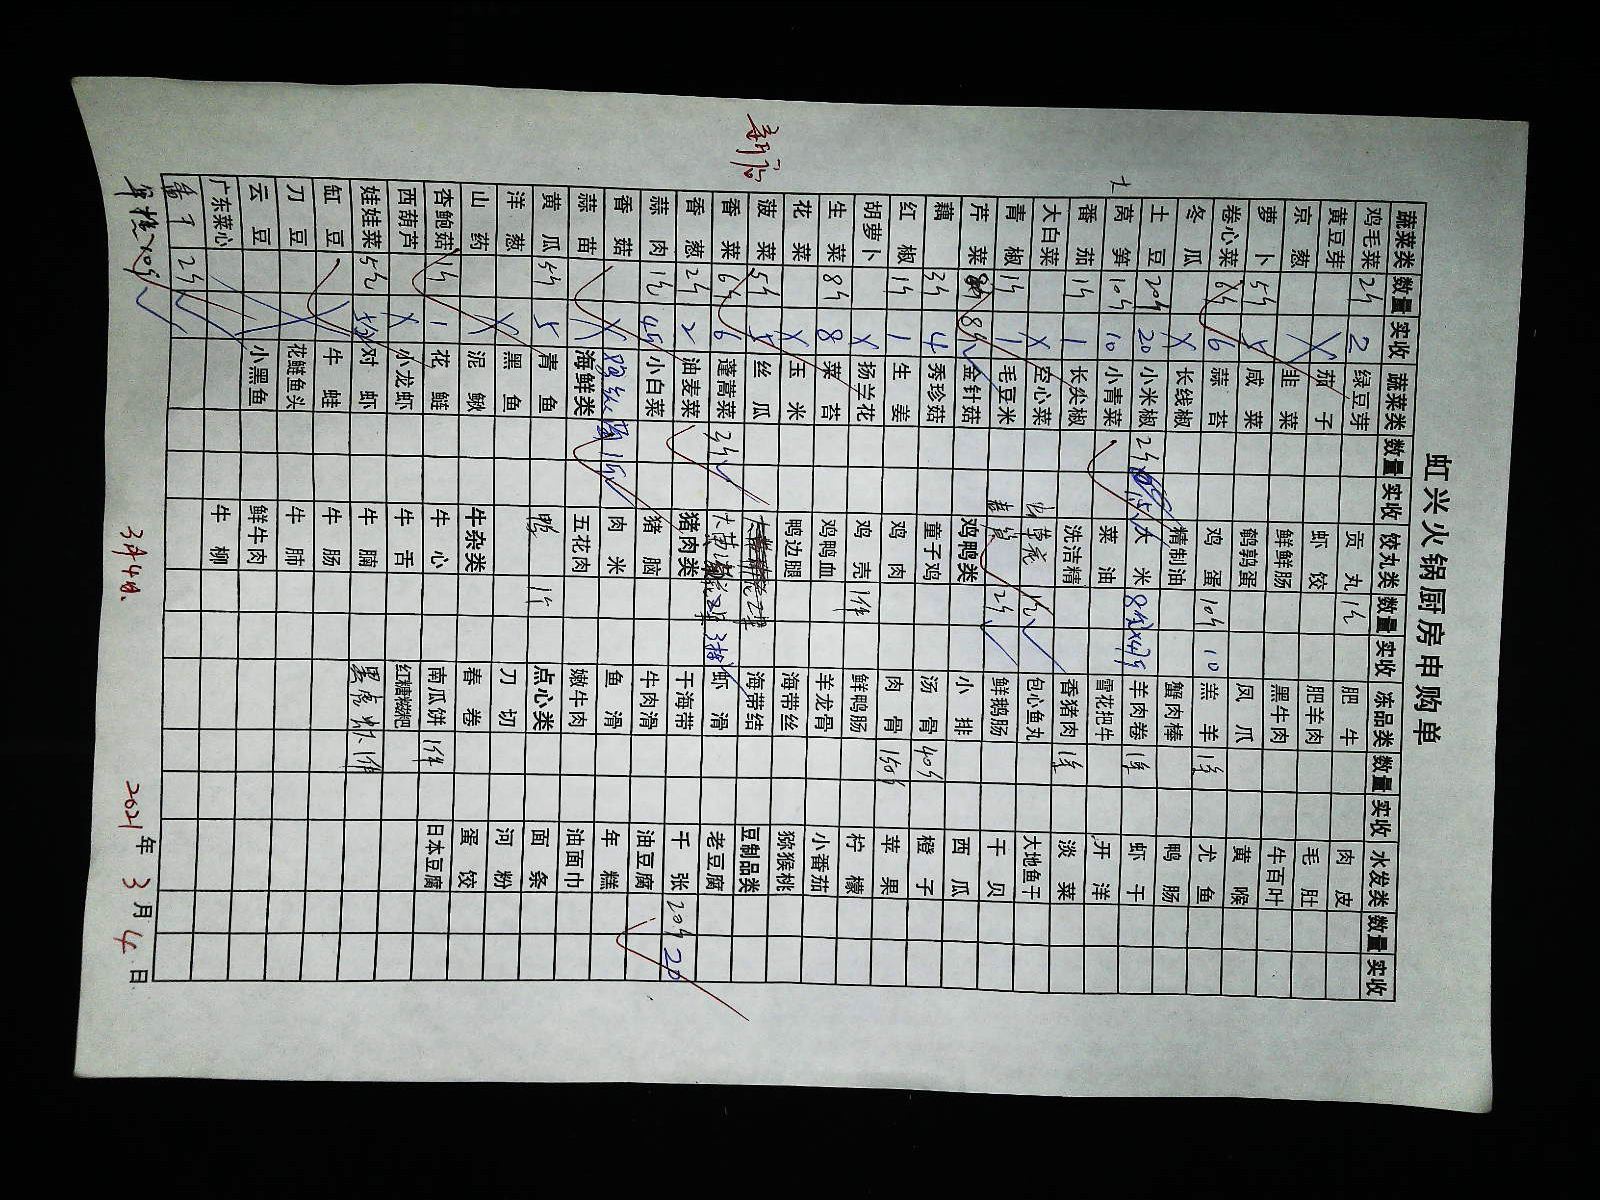 虹兴火锅厨房申购单
新店
蔬菜类 数量 实收 蔬菜类 数量 实收 饺丸类 数量 实收 冻品类 数量 实收 水发类 数量 实收
鸡毛菜 2斤 2 绿豆芽 贡丸 1包 肥牛 肉皮
黄豆芽 X 茄子 虾饺 肥羊肉 毛肚
京葱 X 韭菜 鲜鲜肠 黑牛肉 牛百叶
萝卜 5斤 咸菜 鹌鹑蛋 凤爪 黄喉
卷心菜 6斤 6 蒜苔 鸡蛋 10斤 10 羔羊 1件 尤鱼
冬瓜 X 长线椒 精制油 蟹肉棒 鸭肠
土豆 20斤 20 小米椒 2斤 大米 8袋 羊肉卷 1件 虾干
莴笋 10斤 10 小青菜 菜油 雪花把牛 开洋
番茄 1斤 1 长尖椒 洗洁精 香猪肉 1件 淡菜
大白菜 X 空心菜 包心鱼丸 大地鱼干
青椒 1斤 1 毛豆米 2斤 鲜鹅肠 干贝
芹菜 8斤 金针菇 鸡鸭类 小排 西瓜
藕 3斤 4 秀珍菇 童子鸡 汤骨 40斤 橙子
红椒 1斤 1 生姜 鸡肉 肉骨 150斤 苹果
胡萝卜 X 扬兰花 鸡壳 1件 鲜鸭肠 柠檬
生菜 8斤 8 菜苔 鸡鸭血 羊龙骨 小番茄
花菜 X 玉米 鸭边腿 海带丝 猕猴桃
菠菜 5斤 5 丝瓜 海带结 豆制品类
香菜 6斤 6 蓬蒿菜 3斤 虾滑 老豆腐
香葱 2斤 2 油麦菜 猪肉类 干海带 千张 20斤 20
蒜肉 1包 小白菜 猪脑 牛肉滑 油豆腐
香菇 X 肉米 鱼滑 年糕
蒜苗 海鲜类 五花肉 嫩牛肉 油面巾
黄瓜 5斤 5 青鱼 鸭 点心类 面条
洋葱 X 黑鱼 刀切 河粉
山药 X 泥鳅 牛杂类 春卷 蛋饺
杏鲍菇 1斤 1 花鲢 牛心 南瓜饼 1件 日本豆腐
西葫芦 X 小龙虾 牛舌 红糖糍粑
娃娃菜 5斤 对虾 牛腩 黑虎虾 1件
缸豆 牛蛙 牛肠
刀豆 花鲢鱼头 牛肺
云豆 小黑鱼 鲜牛肉
广东菜心 牛柳
2斤
3月4日 2021年3月4日